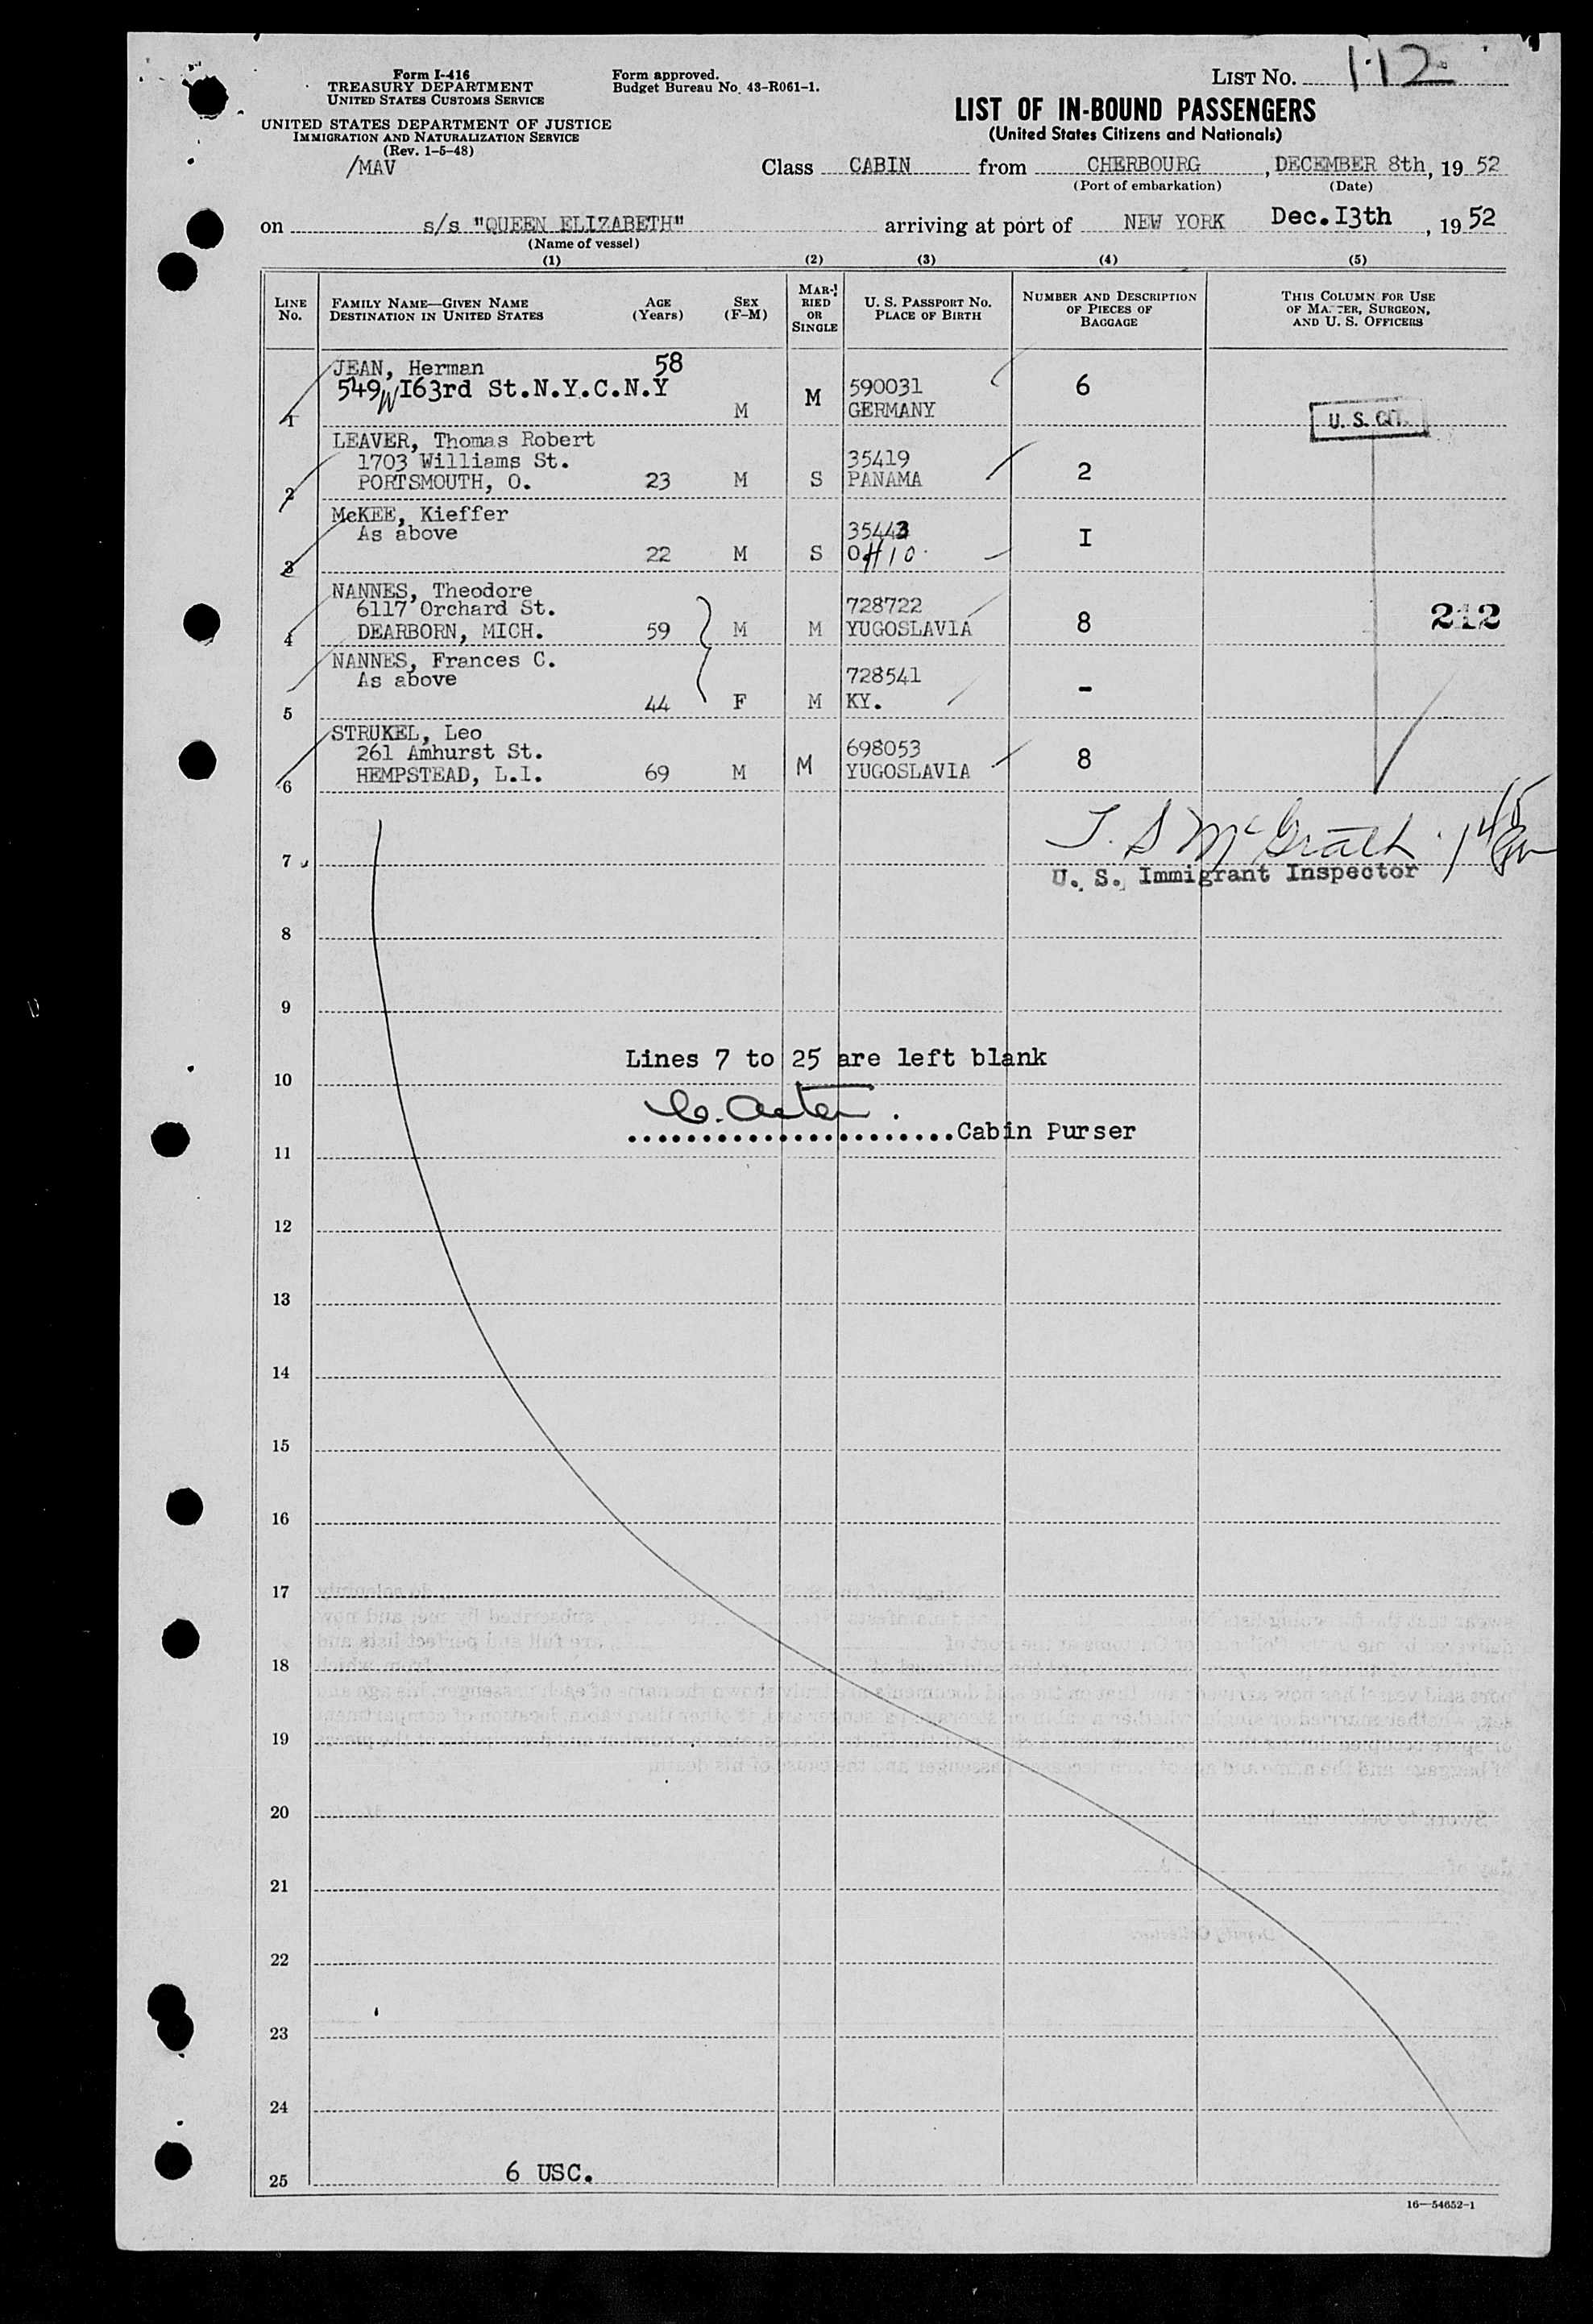 Form I-416
TREASURY DEPARTMENT
UNITED STATES CUSTOMS SERVICE
UNITED STATES DEPARTMENT OF JUSTICE
IMMIGRATION AND NATURALIZATION SERVICE
(Rev. 1-5-48)
/MAV
Form approved.
Budget Bureau No. 43-R061-1.
LIST NO. 112
LIST OF IN-BOUND PASSENGERS
(United States Citizens and Nationals)
Class CABIN from CHERBOURG, DECEMBER 8th, 19 52
(Port of embarkation) (Date)
on s/s "QUEEN ELIZABETH" arriving at port of NEW YORK Dec.I3th, 19 52
(Name of vessel)
(1) (2) (3) (4) (5)
LINE NO.
FAMILY NAME—GIVEN NAME
DESTINATION IN UNITED STATES
AGE (Years)
SEX (F-M)
MARRIED OR SINGLE
U. S. PASSPORT NO.
PLACE OF BIRTH
NUMBER AND DESCRIPTION OF PIECES OF BAGGAGE
THIS COLUMN FOR USE OF MASTER, SURGEON, AND U. S. OFFICERS
JEAN, Herman 58
549 W I63rd St.N.Y.C.N.Y M 590031 6
1 M GERMANY
U. S. CIT.
LEAVER, Thomas Robert
1703 Williams St. 35419 2
2 PORTSMOUTH, O. 23 M S PANAMA
McKEE, Kieffer
As above 35443 I
3 22 M S OHIO.
NANNES, Theodore
6117 Orchard St. 728722 8 212
4 DEARBORN, MICH. 59 M M YUGOSLAVIA
NANNES, Frances C.
As above 728541 -
5 44 F M KY.
STRUKEL, Leo
261 Amhurst St. 698053 8
6 HEMPSTEAD, L.I. 69 M M YUGOSLAVIA
T. S McGrath
7
U. S. Immigrant Inspector
8
9
Lines 7 to 25 are left blank
10
Cabin Purser
11
12
13
14
15
16
17
18
19
20
21
22
23
24
6 USC.
25
16—54652-1